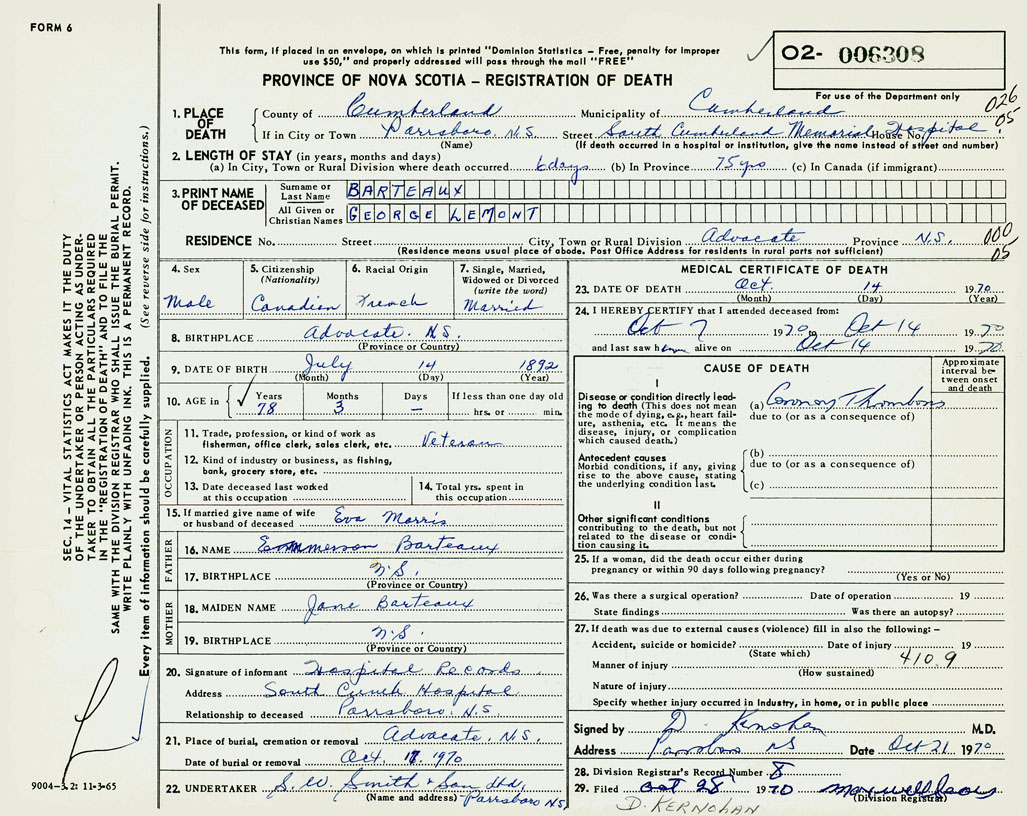 FORM 6
This form, if placed in an envelope, on which is printed "Dominion Statistics – Free, penalty for improper
use $50," and properly addressed will pass through the mail "FREE"
PROVINCE OF NOVA SCOTIA – REGISTRATION OF DEATH
O2- 006308
For use of the Department only
026
05
1. PLACE OF DEATH
County of Cumberland Municipality of Cumberland
If in City or Town Parrsboro. N.S. Street South Cumberland Memorial House No. Hospital.
(Name) (If death occurred in a hospital or institution, give the name instead of street and number)
2. LENGTH OF STAY (in years, months and days)
(a) In City, Town or Rural Division where death occurred 6 days (b) In Province 75 yrs (c) In Canada (if immigrant)
3. PRINT NAME OF DECEASED
Surname or Last Name BARTEAUX
All Given or Christian Names GEORGE LEMONT
RESIDENCE No. Street City, Town or Rural Division Advocate Province N.S. 000
05
(Residence means usual place of abode. Post Office Address for residents in rural parts not sufficient)
4. Sex
Male
5. Citizenship
(Nationality)
Canadian
6. Racial Origin
French
7. Single, Married,
Widowed or Divorced
(write the word)
Married
8. BIRTHPLACE Advocate. N.S.
(Province or Country)
9. DATE OF BIRTH July 14 1892
(Month) (Day) (Year)
10. AGE in ✓ Years Months Days If less than one day old
78 3 – hrs. or min.
OCCUPATION
11. Trade, profession, or kind of work as
fisherman, office clerk, sales clerk, etc. Veteran
12. Kind of industry or business, as fishing,
bank, grocery store, etc.
13. Date deceased last worked
at this occupation
14. Total yrs. spent in
this occupation
15. If married give name of wife
or husband of deceased Eva Morris
FATHER
16. NAME Emmerson Barteaux
17. BIRTHPLACE N.S.
(Province or Country)
MOTHER
18. MAIDEN NAME Jane Barteaux
19. BIRTHPLACE N.S.
(Province or Country)
20. Signature of informant Hospital Records
Address South Cumb Hospital
Relationship to deceased Parrsboro. N.S
21. Place of burial, cremation or removal Advocate. N.S.
Date of burial or removal Oct. 17. 1970
22. UNDERTAKER S. W. Smith & Son Ltd,
(Name and address) Parrsboro N.S.
MEDICAL CERTIFICATE OF DEATH
23. DATE OF DEATH Oct. 14 1970
(Month) (Day) (Year)
24. I HEREBY CERTIFY that I attended deceased from:
Oct 7 1970 to Oct 14 1970
and last saw him alive on Oct 14 1970
CAUSE OF DEATH
Approximate
interval be-
tween onset
and death
I
Disease or condition directly lead-
ing to death (This does not
mean the mode of dying, e.g., heart fail-
ure, asthenia, etc. It means the
disease, injury, or complication
which caused death.)
(a) Coronary Thrombosis
due to (or as a consequence of)
Antecedent causes
Morbid conditions, if any, giving
rise to the above cause, stating
the underlying condition last.
(b)
due to (or as a consequence of)
(c)
II
Other significant conditions
contributing to the death, but not
related to the disease or condi-
tion causing it.
25. If a woman, did the death occur either during
pregnancy or within 90 days following pregnancy?
(Yes or No)
26. Was there a surgical operation? Date of operation 19
State findings Was there an autopsy?
27. If death was due to external causes (violence) fill in also the following: –
Accident, suicide or homicide? Date of injury 19
(State which) 410.9
Manner of injury
(How sustained)
Nature of injury
Specify whether injury occurred in Industry, in home, or in public place
Signed by D. Kernohan M.D.
Address Parrsboro NS Date Oct 21 1970
28. Division Registrar's Record Number 8
29. Filed Oct 28 1970
(Division Registrar)
D. KERNOHAN
SEC. 14 – VITAL STATISTICS ACT MAKES IT THE DUTY
OF THE UNDERTAKER OR PERSON ACTING AS UNDER-
TAKER TO OBTAIN ALL THE PARTICULARS REQUIRED
IN THE "REGISTRATION OF DEATH" AND TO FILE THE
SAME WITH THE DIVISION REGISTRAR WHO SHALL ISSUE THE BURIAL PERMIT.
WRITE PLAINLY WITH UNFADING INK. THIS IS A PERMANENT RECORD.
Every item of information should be carefully supplied. (See reverse side for instructions.)
9004-3.2: 11-3-65